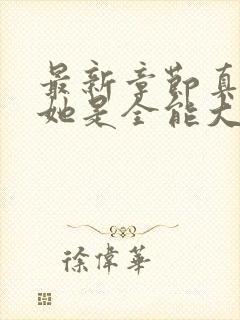 最新章節真
她是全能大
徐偉華